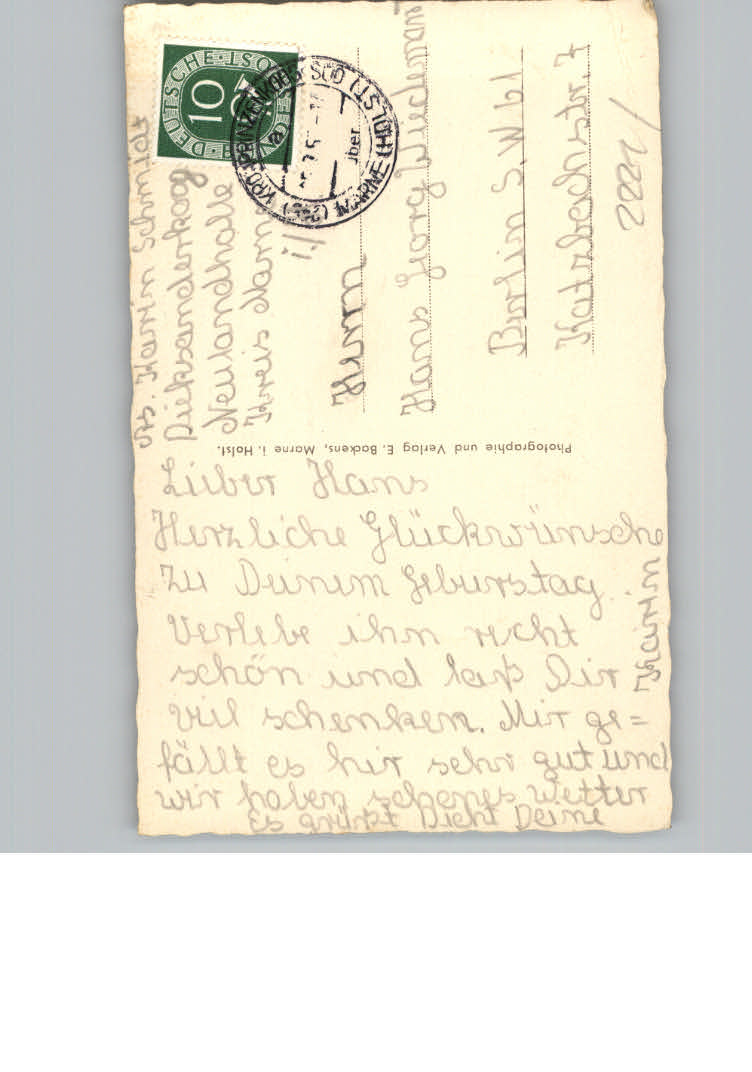 Abs. Karin Schmidt
Dieksanderkoog
Neulandhalle
Kreis Marne
i./
DEUTSCHE BUNDESPOST
10
KRONPRINZENKOOG SÜD
über
MARNE (HOLST)
Herrn
Hans Georg Wiedemann
Berlin S.W 61
Katzbachstr. 7
2221/
Photographie und Verlag E. Backens, Marne i. Holst.
Lieber Hans
Herzliche Glückwünsche
zu Deinem Geburstag.
Verlebe ihn recht
schön und laß Dir
viel schenken. Mir ge=
fällt es hir sehr gut und
wir haben schenes Wetter
Es grüßt Dich Deine
Karin